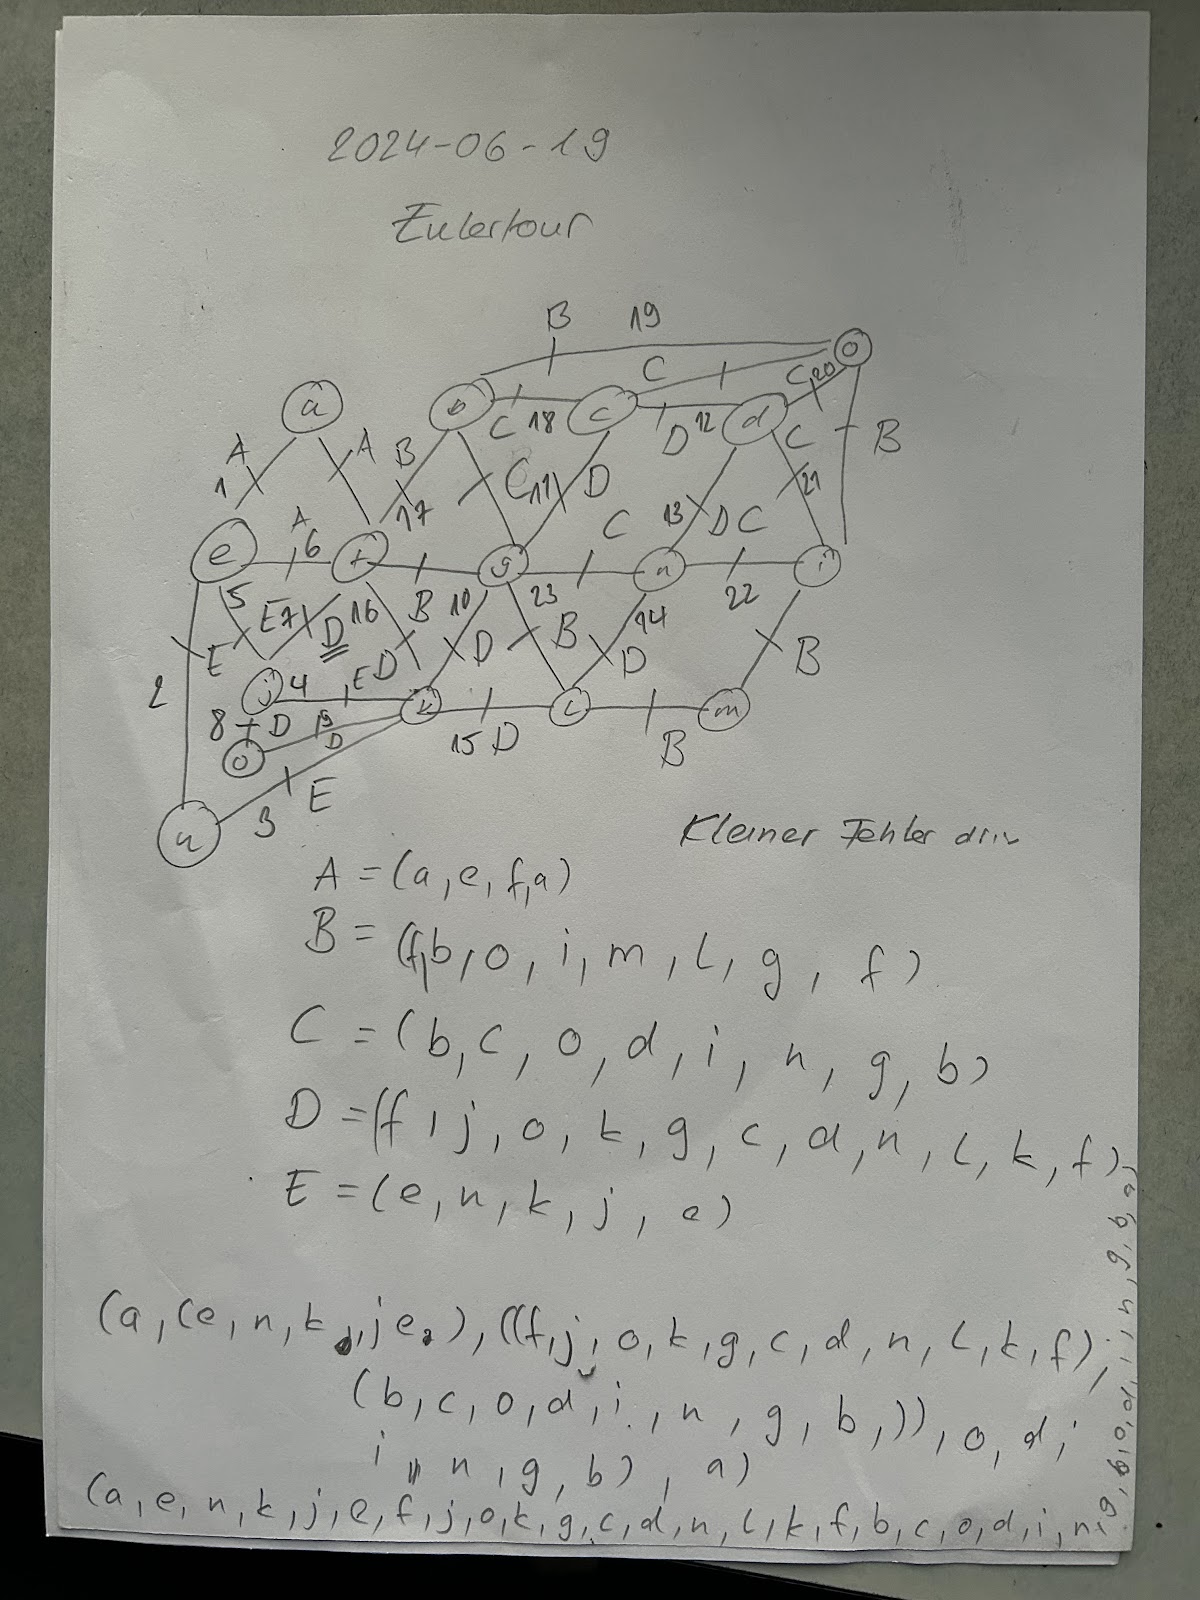 2024-06-19
Eulertour
B 19
C
C 20
a b c d o
A A B C 18 D 12 C B
1 17 C 11 D 13 D C 21
e A 6 f g C n i
5 E 7 D 16 B 10 23 B 14 22
2 E D D D B
j 4 E k l m
8 D 9 D 15 D B
o
3 E
n
Kleiner Fehler drin
A = (a, e, f, a)
B = (f, b, o, i, m, l, g, f)
C = (b, c, o, d, i, n, g, b)
D = (f, j, o, k, g, c, d, n, l, k, f)
E = (e, n, k, j, e)
(a, (e, n, k, j e), ((f, j, o, k, g, c, d, n, l, k, f),
(b, c, o, d, i, n, g, b,)), o, d,
i, n, g, b), a)
(a, e, n, k, j, e, f, j, o, k, g, c, d, n, l, k, f, b, c, o, d, i, n, g, b, o, d, i, n, g, b, a)